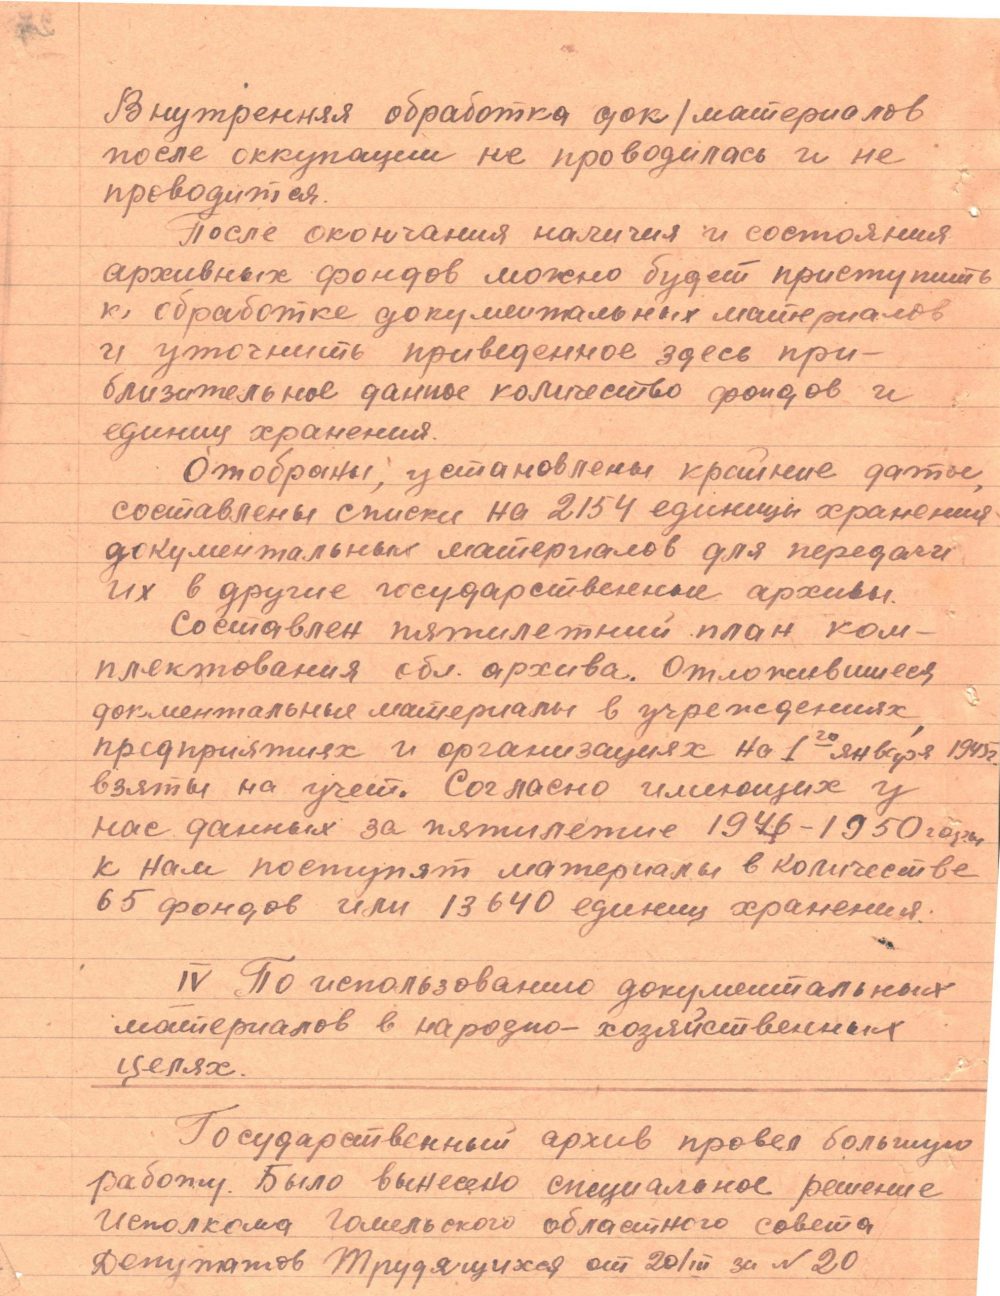 Внутренняя обработка док/материалов
после оккупации не проводилась и не
проводится.
После окончания наличия и состояния
архивных фондов можно будет приступить
к обработке документальных материалов
и уточнить приведенное здесь при-
близительное данное количество фондов и
единиц хранения.
Отобраны, установлены крайние даты,
составлены списки на 2154 единицы хранения
документальных материалов для передачи
их в другие государственные архивы.
Составлен пятилетний план ком-
плектования обл. архива. Отложившиеся
докментальные материалы в учреждениях,
предприятиях и организациях на 1го января 1945г.
взяты на учет. Согласно имеющих у
нас данных за пятилетие 1946-1950 годы
к нам поступят материалы в количестве
65 фондов или 13640 единиц хранения.
IV По использованию документальных
материалов в народно-хозяйственных
целях.
Государственный архив провел большую
работу. Было вынесено специальное решение
Исполкома Гомельского областного совета
Депутатов Трудящихся от 20/III за N 20